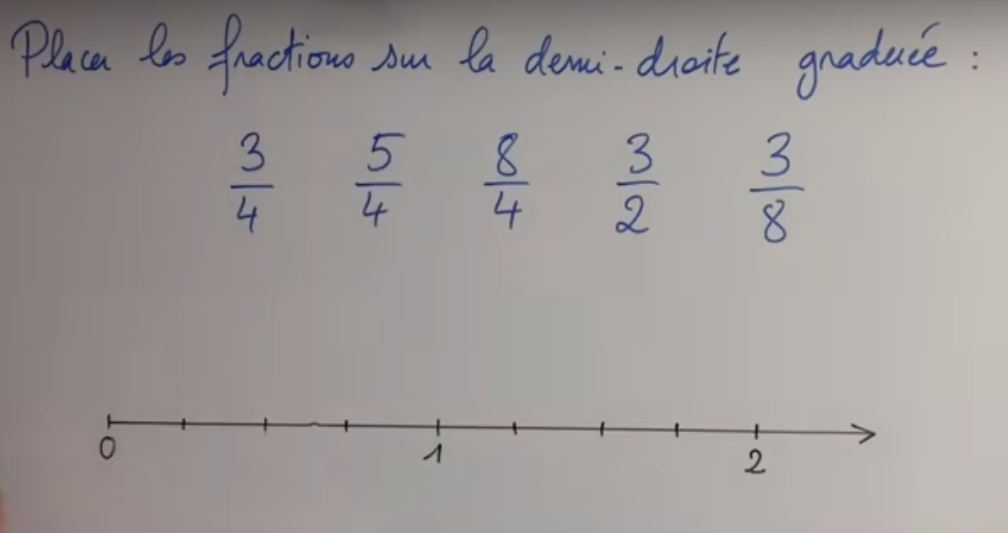 Placer les fractions sur la demi-droite graduée :
3/4 5/4 8/4 3/2 3/8
0 1 2